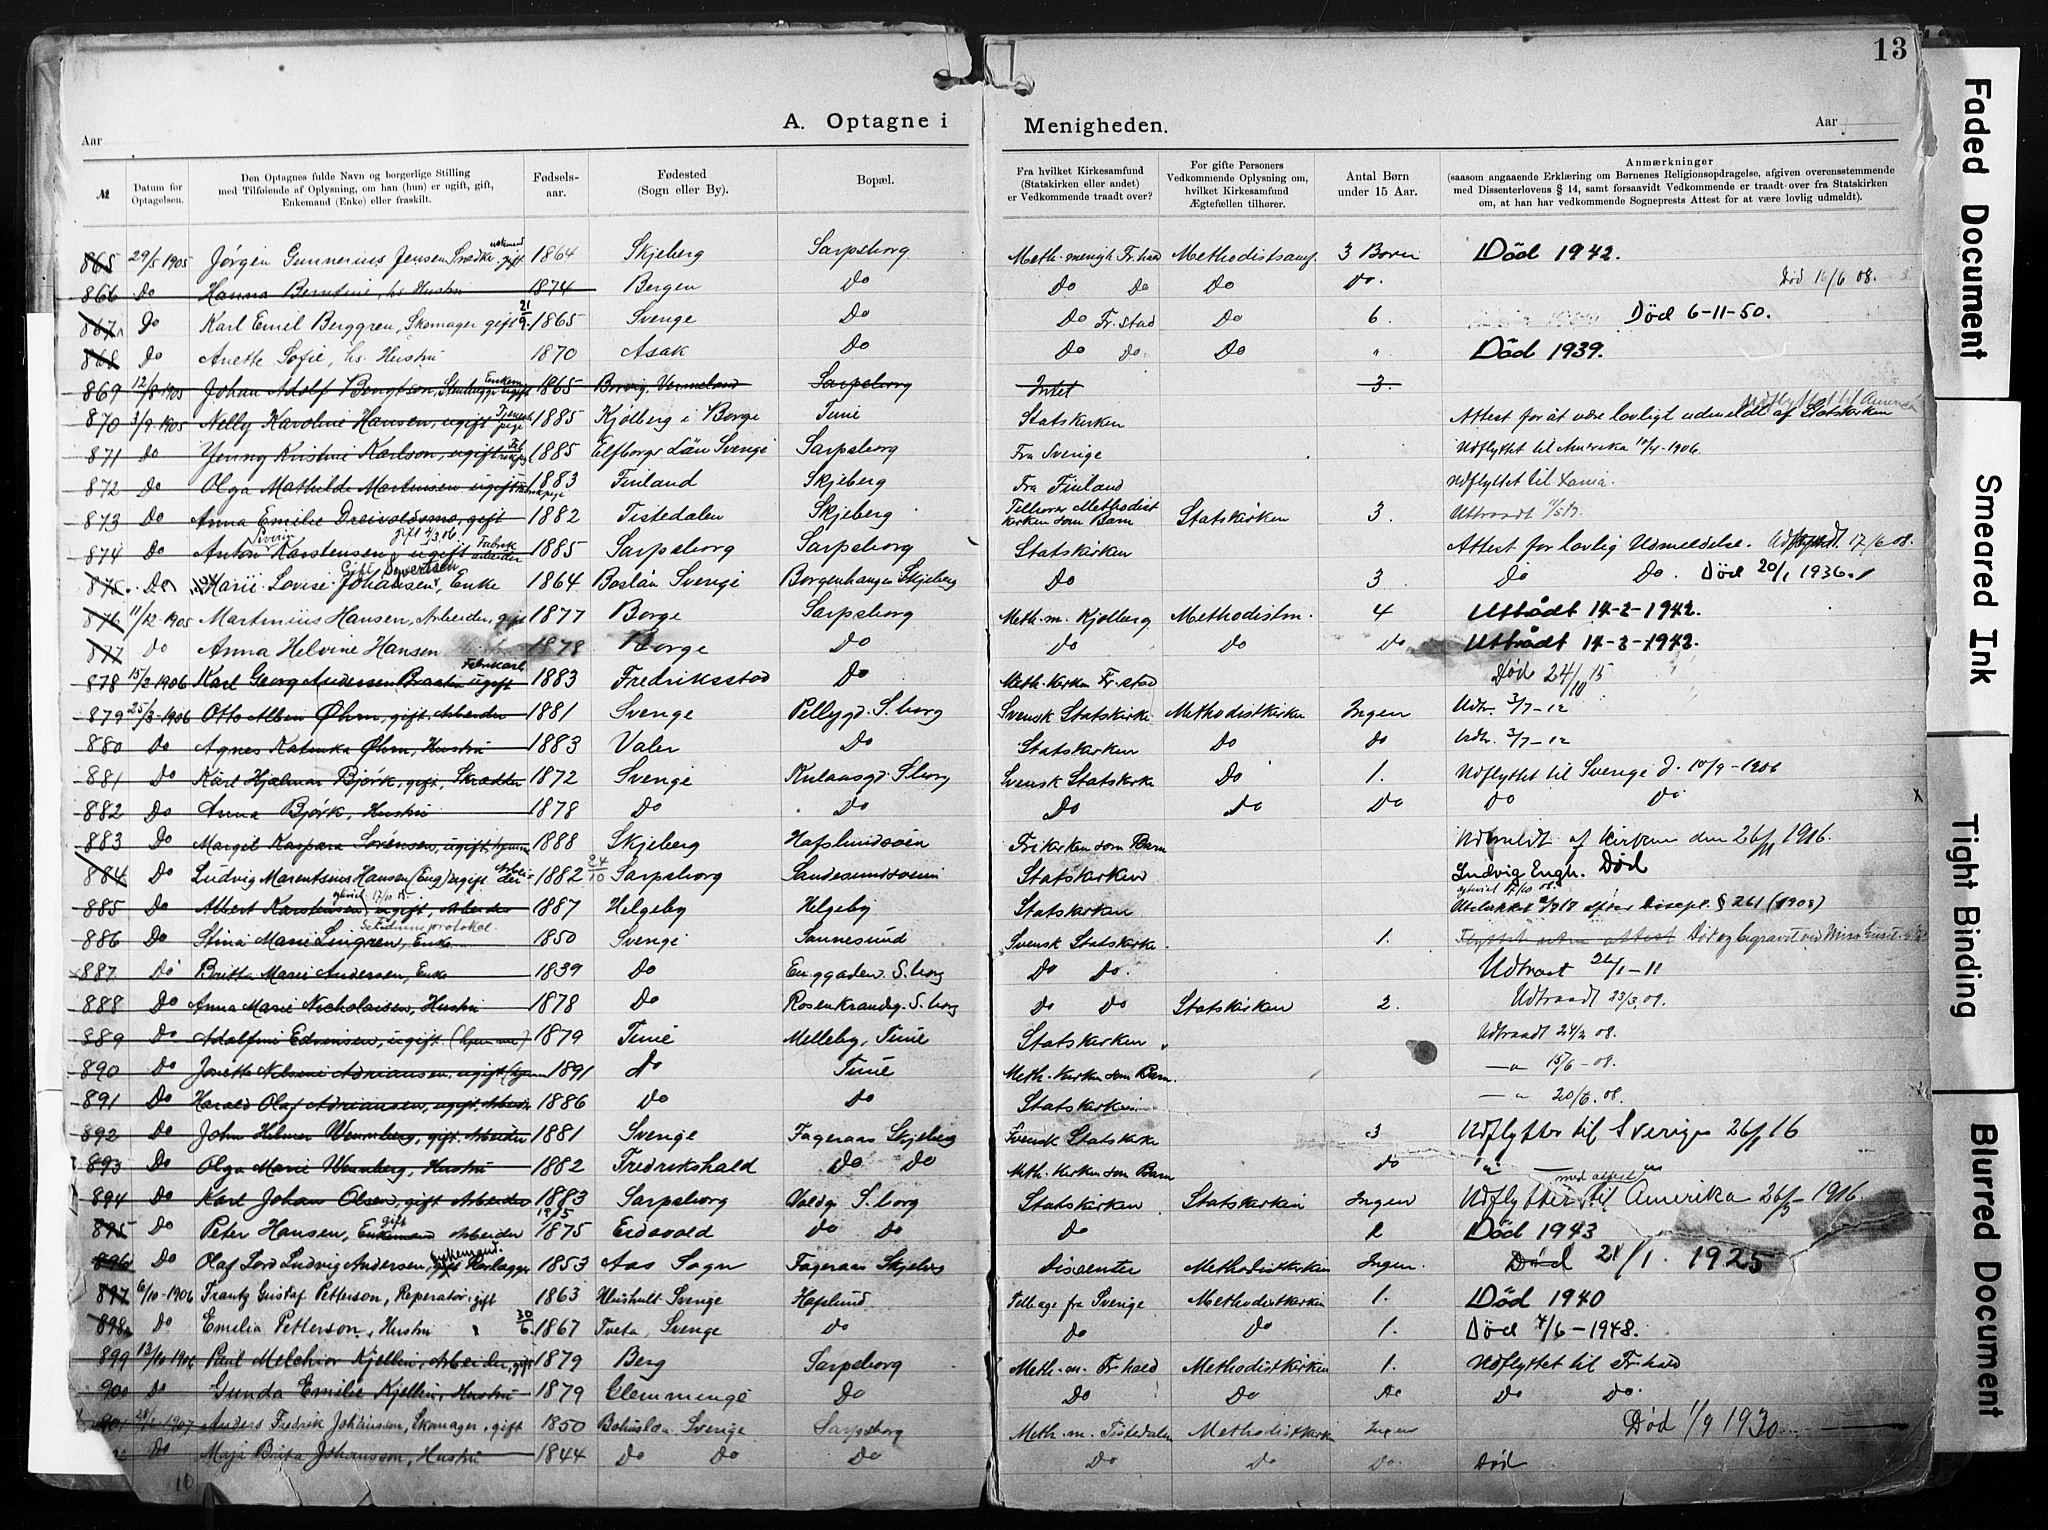 13
A. Optagne i Menigheden.
Aar Aar
№ Datum for Optagelsen. Den Optagnes fulde Navn og borgerlige Stilling med Tilføiende af Oplysning, om han (hun) er ugift, gift, Enkemand (Enke) eller fraskilt. Fødsels-aar. Fødested (Sogn eller By). Bopæl. Fra hvilket Kirkesamfund (Statskirken eller andet) er Vedkommende traadt over? For gifte Personers Vedkommende Oplysning om, hvilket Kirkesamfund Ægtefællen tilhører. Antal Børn under 15 Aar. Anmærkninger (saasom angaaende Erklæring om Børnenes Religionsopdragelse, afgiven overensstemmende med Dissenterlovens § 14, samt forsaavidt Vedkommende er traadt over fra Statskirken om, at han har vedkommende Sogneprests Attest for at være lovlig udmeldt).
865 29/5 1905 Jørgen Gunnerius Jensen Snedker gift 1864 Skjeberg Sarpsborg Meth. menigh Fr.hald Methodistsamf 3 Born Død 1942.
866 Do Hanna Berntine, hs Hustru 1874 Bergen Do Do Do Do Do. Død 16/6 08.
867 Do Karl Emil Berggren, Skomager gift 21/9 1865 Sverige Do Do Fr.stad Do 6. Død 6-11-50.
868 Do Anette Sofie, hs. Hustru 1870 Asak Do Do do. Do " Død 1939.
869 12/8 1905 Johan Adolf Bengtson, Enkem 1865 Sarpsborg Intet 3
870 3/9 1905 Nelly Karoline Hansen, ugift 1885 Kjølberg i Borge Tune Statskirken Attest for at være lovligt udmeldt af Statskirken Udflyttet til Amerika
871 Do Yenny Kristine Karlson, ugift 1885 Elfborgs Län Sverige Sarpsborg Fra Sverige Udflyttet til Amerika 10/4 1906.
872 Do Olga Mathilde Martinsen ugift 1883 Finland Skjeberg Fra Finland Udflyttet til Xania.
873 Do Anna Emilie Dreivoldsmo, gift 1882 Tistedalen Skjeberg Tilhorer Methodist kirken som Barn Statskirken 3. Uttraadt
874 Do Anton Severin Karstensen ugift Fabrik arbeider gift 4/3 06. 1885 Sarpsborg Sarpsborg Statskirken Attest for lovlig Udmeldelse. 17/6 08.
875. Do Marie Lovise Johansen, Enke Gift Syvertsen 1864 Boslän Sverige Borgenhaugen Skjeberg Do 3 Do Do. Død 20/1 1936.
876 11/12 1905 Martinius Hansen, Arbeider, gift 1877 Borge Sarpsborg Meth. m. Kjølberg Methodistm. 4 Uttrådt 14-2-1942.
877 Do Anna Helvine Hansen 1878 Borge Do Do Do Do Uttrådt 14-2-1942.
878 15/2 1906 Karl Georg Andersen Braaten ugift Fabrikarb 1883 Fredriksstad Do Meth. Kirken Fr.stad Død 24/10 15
879 25/3 1906 Otto Albin Øhrn, gift, Arbeider 1881 Sverige Pellygd. S.borg Svensk Statskirke Methodistkirken Ingen Udtr. 3/7-12
880 Do Agnes Katinka Øhrn, Hustru 1883 Valer Do Statskirken Do Do Udtr. 3/7-12
881 Do Karl Hjalmar Bjørk, gift, Skrædder 1872 Sverige Kulaasgd. S.borg Svensk Statskirke Do 1. Udflyttet til Sverige d. 10/9-1906
882 Do Anna Bjørk, Hustru 1878 Do Do Do Do Do Do Do X
883 Do Margit Kaspara Sørensen, ugift, hjemme 1888 Skjeberg Hafslundsøen Fri kirken som Barn Udmeldt af kirken den 26/11 1916.
884 Do Ludvig Marentsius Hansen (Eng) ugift Arbeider 1882 24/10 Sarpsborg Sandesundsveien Statskirken Ludvig Engh. Død
885 Do Albert Karstensen ugift, Arbeider 1887 Helgeby Helgeby Statskirken Utelukket efter Discipl. § 261 (1908)
886 Do Stina Marie Lingren, Enke 1850 Sverige Sannesund Svensk Statskirke 1. Flyttet uden attest Død og begravet ved
887 Do Britta Marie Andersen, Enke 1839 Do Enggaden. S.borg Do Do. Udtraat 26/1-11
888 Do Anna Marie Nicholaisen, Hustru 1878 Do Rosenkrandsg. S.borg Do Do Statskirken 2. Udtraadt 23/3.09.
889 Do Adolfine Edvinsen, ugift (hjemme) 1879 Tune Melleby, Tune Statskirken Udtraadt 08.
890 Do Jonette Nilsine Adriansen, ugift, hjem 1891 Do Tune Meth. Kirken som Barn. — " 15/6-08.
891 Do Harald Olaf Adriansen, ugift, Arbeider 1886 Do Do Statskirken — " 20/6. 08.
892 Do John Hilmer Wennberg, gift, Arbeider 1881 Sverige Fageraas Skjeberg Svensk Statskirke 3 Udflyttet til Sverige 26/1 16
893 Do Olga Marie Wennberg, Hustru 1882 Fredrikshald Do Do Meth. Kirken som Barn Do "
894 Do Karl Johan Olsen, gift Arbeider 1883 Sarpsborg Valdg. S.borg Statskirken Statskirken Ingen Udflyttet med attest til Amerika 26/3-1916.
895 Do Peter Hansen, Enkemand gift Arbeider 1875 Eidsvold Do Do Do 2 Død 1943
896 Do Olaf Lord Ludvig Andersen, gift Enkemand. 1853 Aas Sogn Fageraas Skjeberg Dissenter Methodistkirken Ingen. Død 21/1. 1925
897 6/10-1906 Frantz Gustaf Petterson, Reperatør, gift 1863 Sverige Hafslund Tilbage fra Sverige Methodistkirken 1. Død 1940
898 Do Emelia Petterson, Hustru 30/6 1867 Tveta, Sverige Do Do Do 1. Død 4/6-1948.
899 13/10 1906 Paul Melchior Kjellin, Arbeider, gift 1879 Berg Sarpsborg Meth. m. Fr.hald Methodistkirken 1. Udflyttet til Fr.hald
900 Do Gunda Emilie Kjellin, Hustru 1879 Glemminge Do Do Do Do Do Do.
901 1907 Anders Fredrik Johanson, Skomager, gift 1850 Bohuslän Sverige Sarpsborg Meth. m. Tistedalen Methodistkirken Ingen Død 1/9 1930
Do Maja Brita Johansson, Hustru 1844 Do Do Do Do Do Do. Død
10
Faded Document
Smeared Ink
Tight Binding
Blurred Document